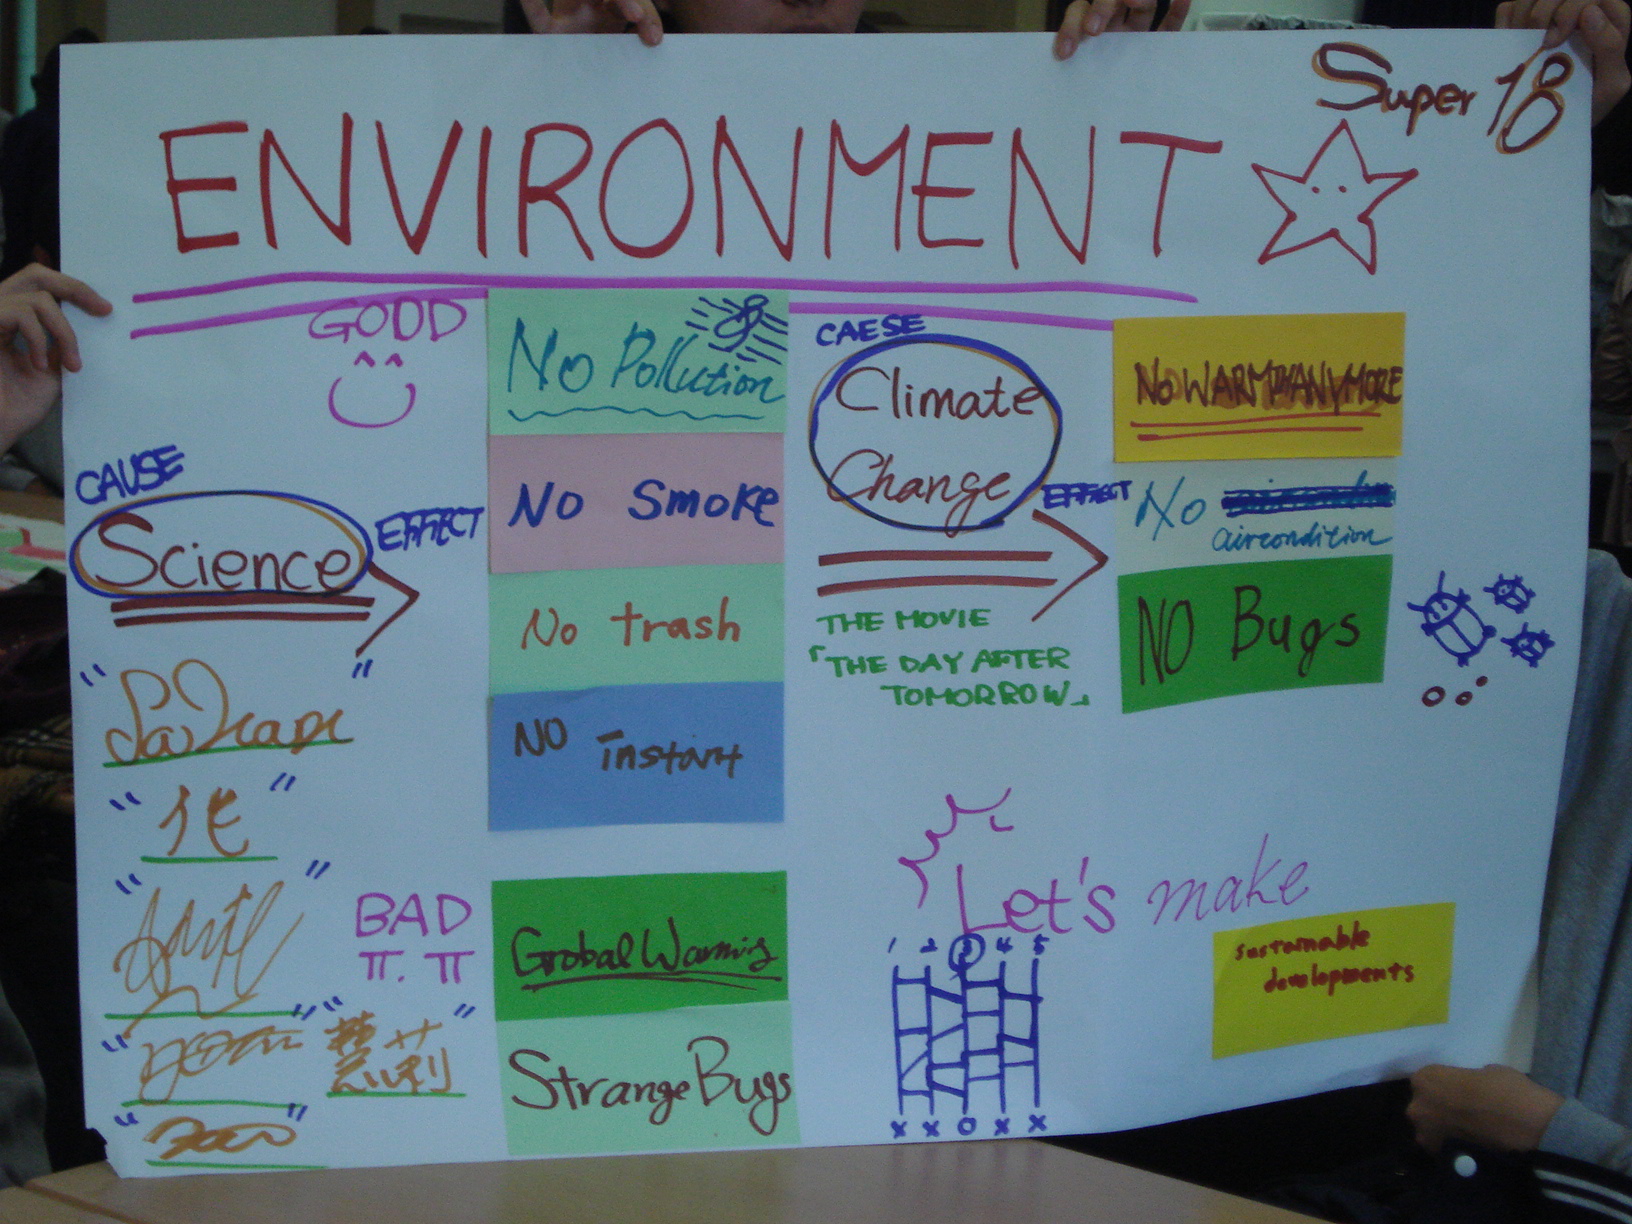 Super 18
ENVIRONMENT
GOOD
CAUSE
Science
EFFECT
No Pollution
No Smoke
No trash
NO instant
CAESE
Climate
Change
EFFECT
THE MOVIE
「THE DAY AFTER
TOMORROW」
NO WARM ANYMORE
No
aircondition
NO Bugs
BAD
Grobal Warming
Strange Bugs
Let's make
sustainable
developments
1 2 3 4 5
x x o x x